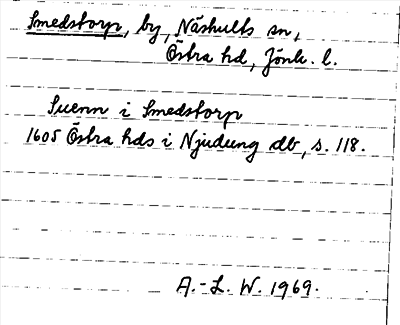 Smedstorp, by, Näshults sn,
Östra hd, Jönk. l.
Suenn i Smedstorp
1605 Östra hds i Njudung db, s. 118.
A.-L. W. 1969.